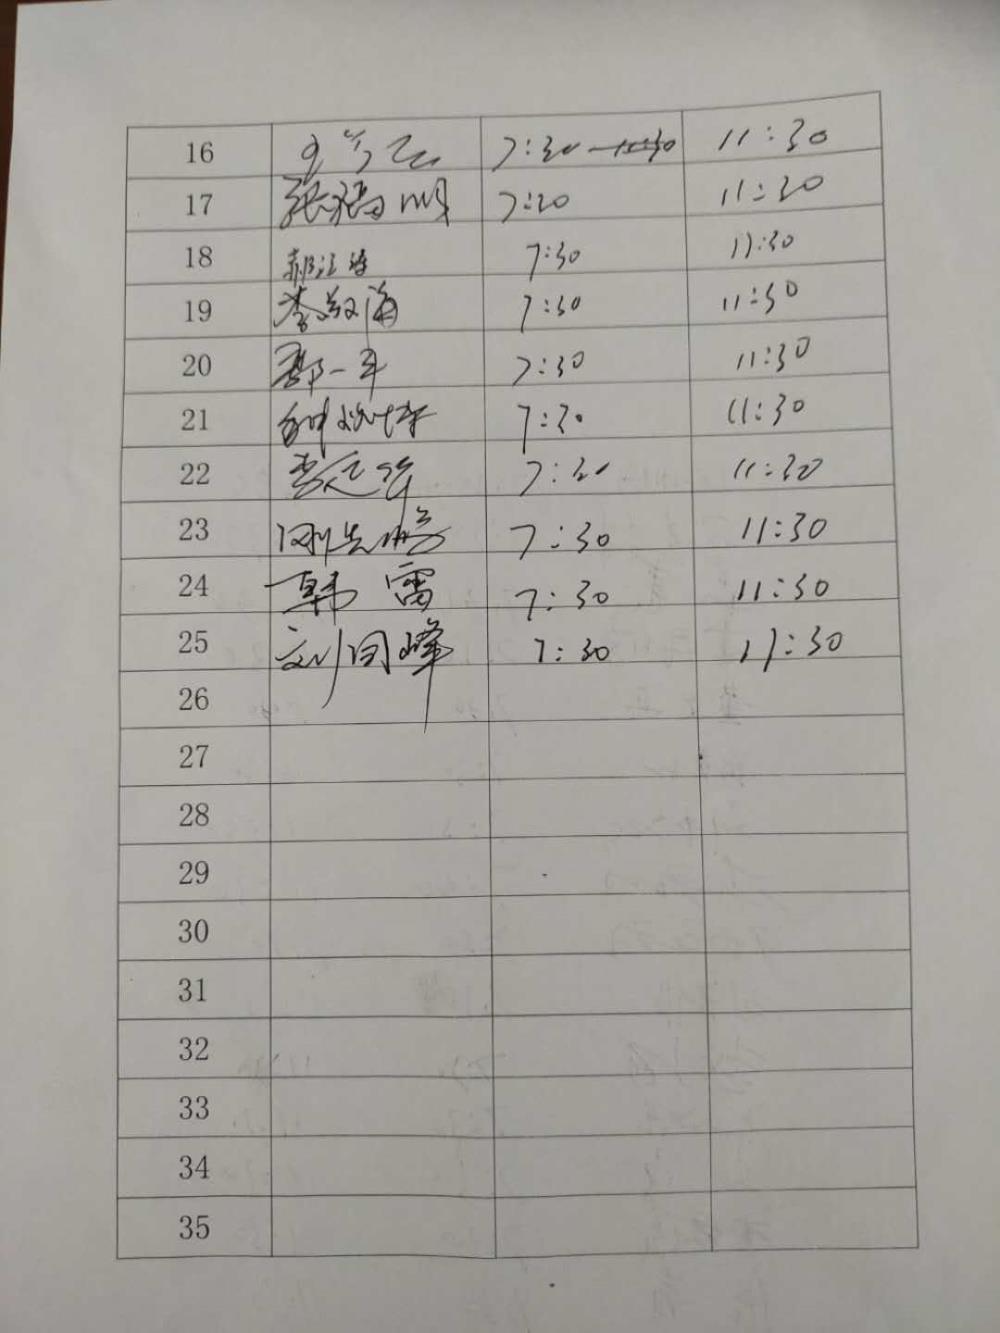 16 7:30 11:30
17 张福明 7:30 11:30
18 郝 7:30 11:30
19 李敬海 7:30 11:30
20 郭一平 7:30 11:30
21 钟 7:30 11:30
22 李廷 7:30 11:30
23 刚先鹏 7:30 11:30
24 韩雷 7:30 11:30
25 刘同峰 7:30 11:30
26
27
28
29
30
31
32
33
34
35